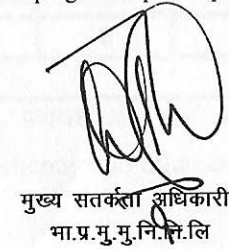 मुख्य सतर्कता अधिकारी
भा.प्र.मु.मु.नि.नि.लि